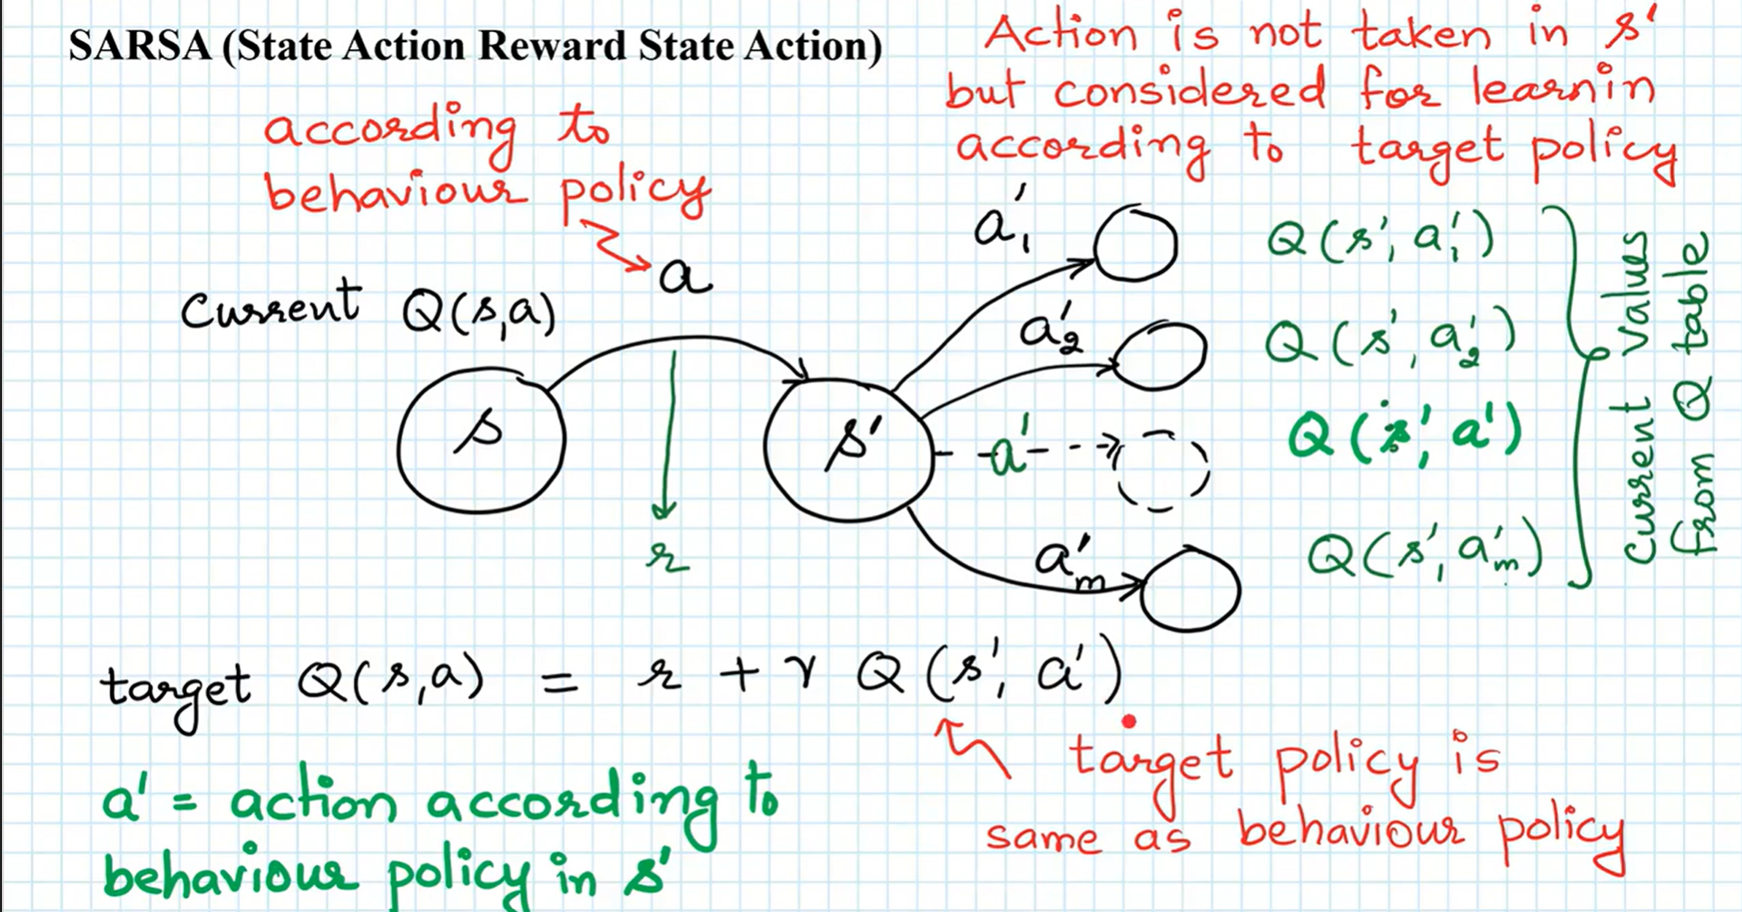 SARSA (State Action Reward State Action)
Action is not taken in s'
but considered for learnin
according to target policy
according to
behaviour policy
a
Current Q(s,a)
s
r
s'
a'₁
a'₂
a'
a'm
Q(s', a'₁)
Q(s', a'₂)
Q(s', a')
Q(s', a'm)
Current values
from Q table
target Q(s,a) = r + γ Q(s', a')
target policy is
same as behaviour policy
a' = action according to
behaviour policy in s'